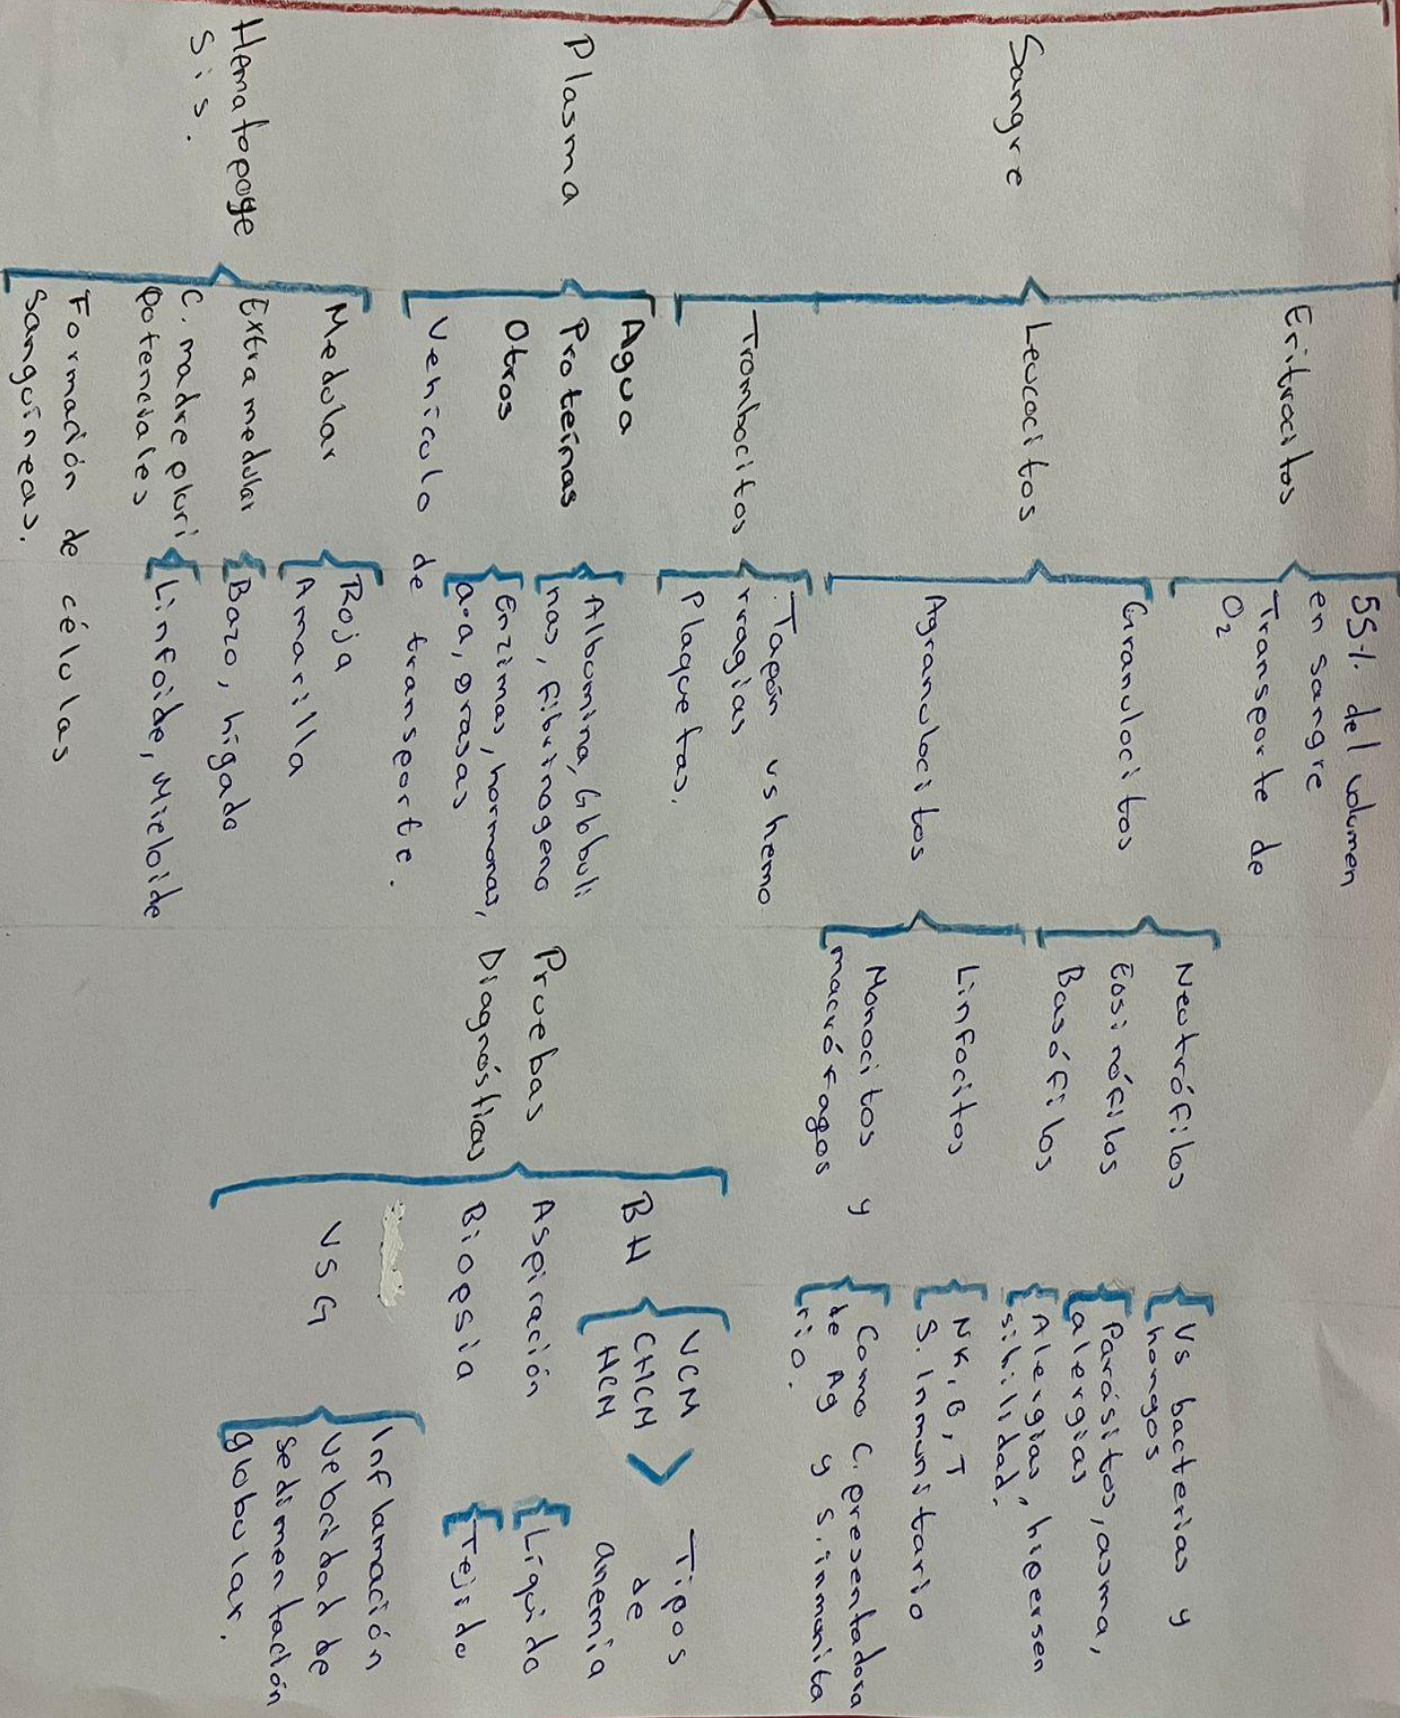 Sangre
Eritrocitos
55% del volumen
en sangre
Transporte de
O₂
Leucocitos
Granulocitos
Neutrófilos
Vs bacterias y
hongos
Eosinófilos
Parásitos, asma,
alergias
Basófilos
Alergias, hipersen
sibilidad.
Agranulocitos
Linfocitos
NK, B, T
S. Inmunitario
Monocitos y
macrófagos
Como C. presentadora
de Ag y S. inmunita
rio.
Trombocitos
Tapón vs hemo
rragias
Plaquetas.
Plasma
Agua
Proteínas
Albumina, Globuli
nas, fibrinogeno
Otros
Enzimas, hormonas,
a.a, grasas
Vehículo de transporte.
Hematopoye
sis.
Medular
Roja
Amarilla
Extramedular
Bazo, hígado
C. madre pluri
potenciales
Linfoide, Mieloide
Formación de células
sanguíneas.
Pruebas
Diagnósticas
BH
VCM
CHCM
HCM
Tipos
de
anemia
Aspiración
Líquido
Biopsia
Tejido
VSG
Inflamación
Velocidad de
sedimentación
globular.